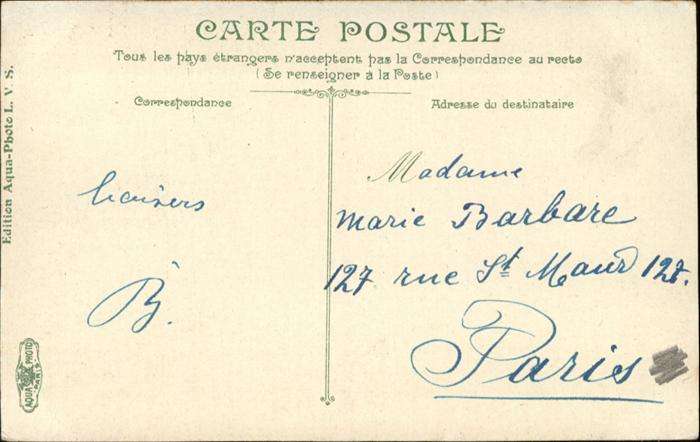 CARTE POSTALE
Tous les pays étrangers n'acceptent pas la Correspondance au recto
(Se renseigner à la Poste)
Correspondance
Adresse du destinataire
Edition Aqua-Photo L. V. S.
baisers
B.
Madame
Marie Barbare
127 rue St Maur 127.
Paris
AQUA PHOTO
PARIS